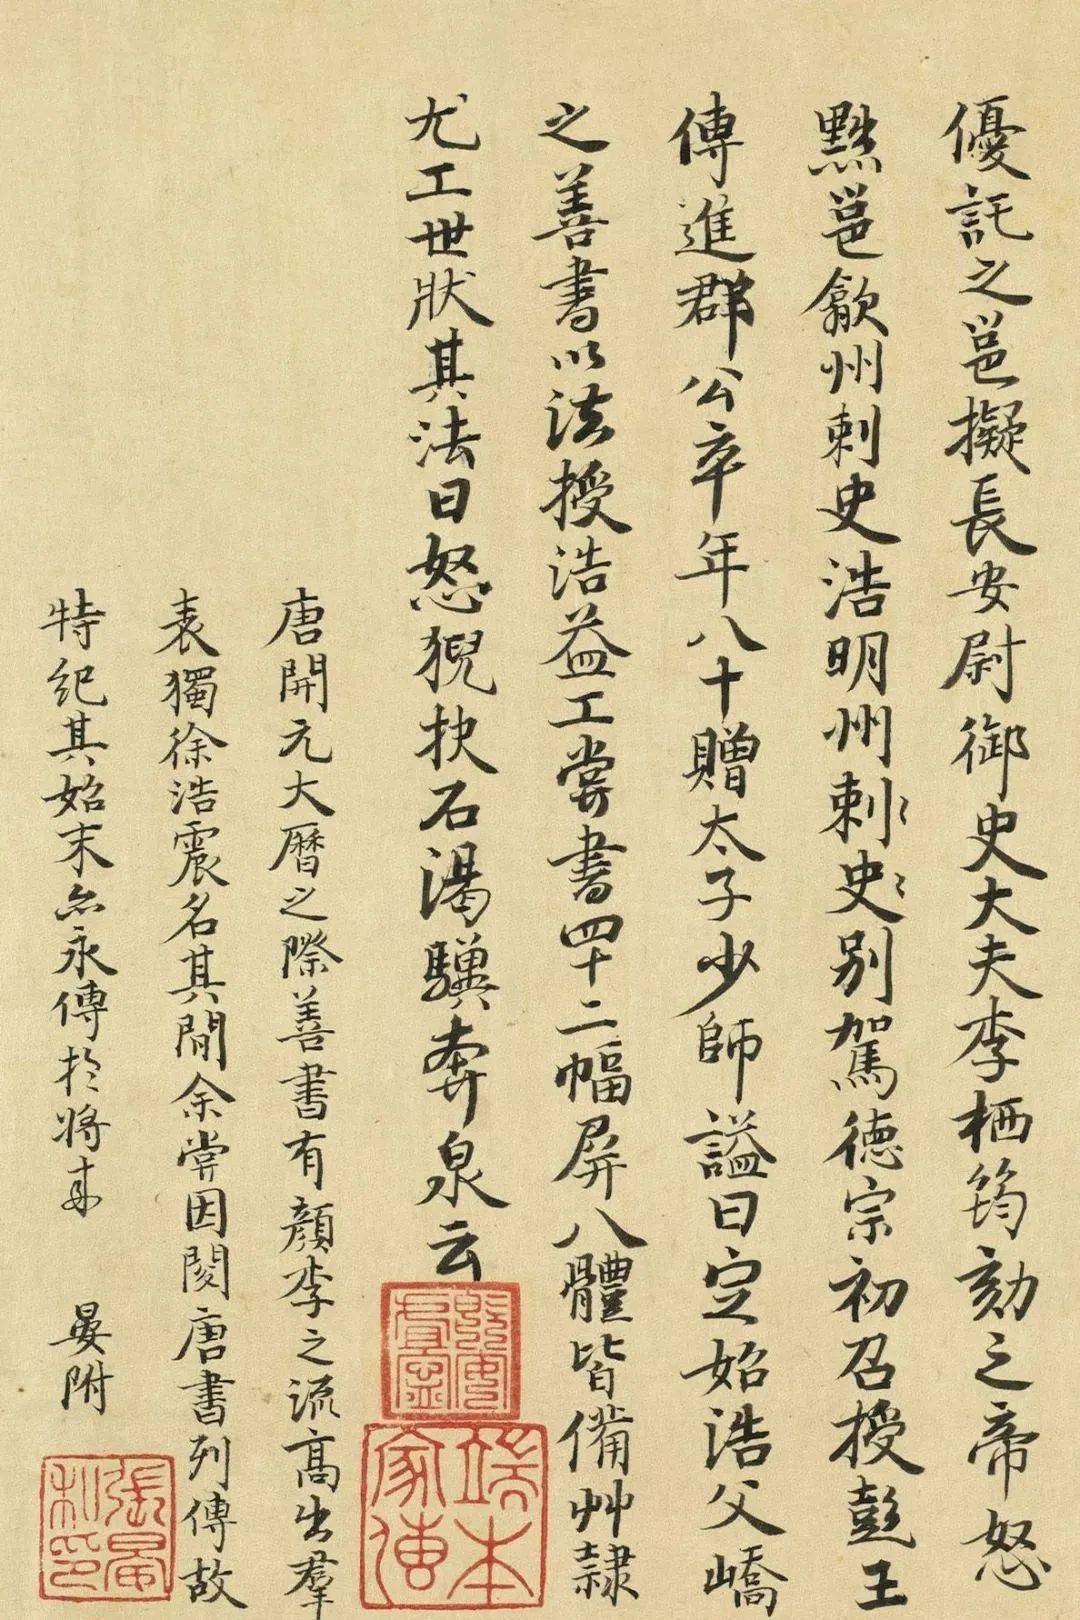 優託之邕擬長安尉御史大夫李栖筠劾之帝怒
黜邕歙州刺史浩明州刺史別駕德宗初召授彭王
傅進郡公卒年八十贈太子少師謚曰定始浩父嶠
之善書以法授浩益工嘗書四十二幅屏八體皆備艸隸
尤工世狀其法曰怒猊抉石渴驥奔泉云
唐開元大曆之際善書有顏李之流高出羣
表獨徐浩震名其間余嘗因閱唐書列傳故
特紀其始末亦永傳於將來 晏附
端本家傳
張晏私印